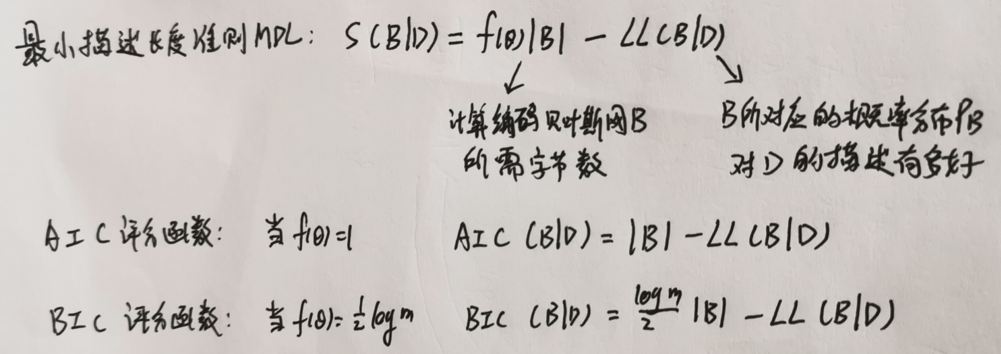 最小描述长度准则MDL: S(B|D) = f(θ)|B| - LL(B|D)
计算编码贝叶斯网B
所需字节数
B所对应的概率分布PB
对D的描述有多好
AIC评分函数: 当f(θ)=1 AIC (B|D) = |B| - LL(B|D)
BIC 评分函数: 当f(θ)=½logm BIC (B|D) = logm/2 |B| - LL (B|D)